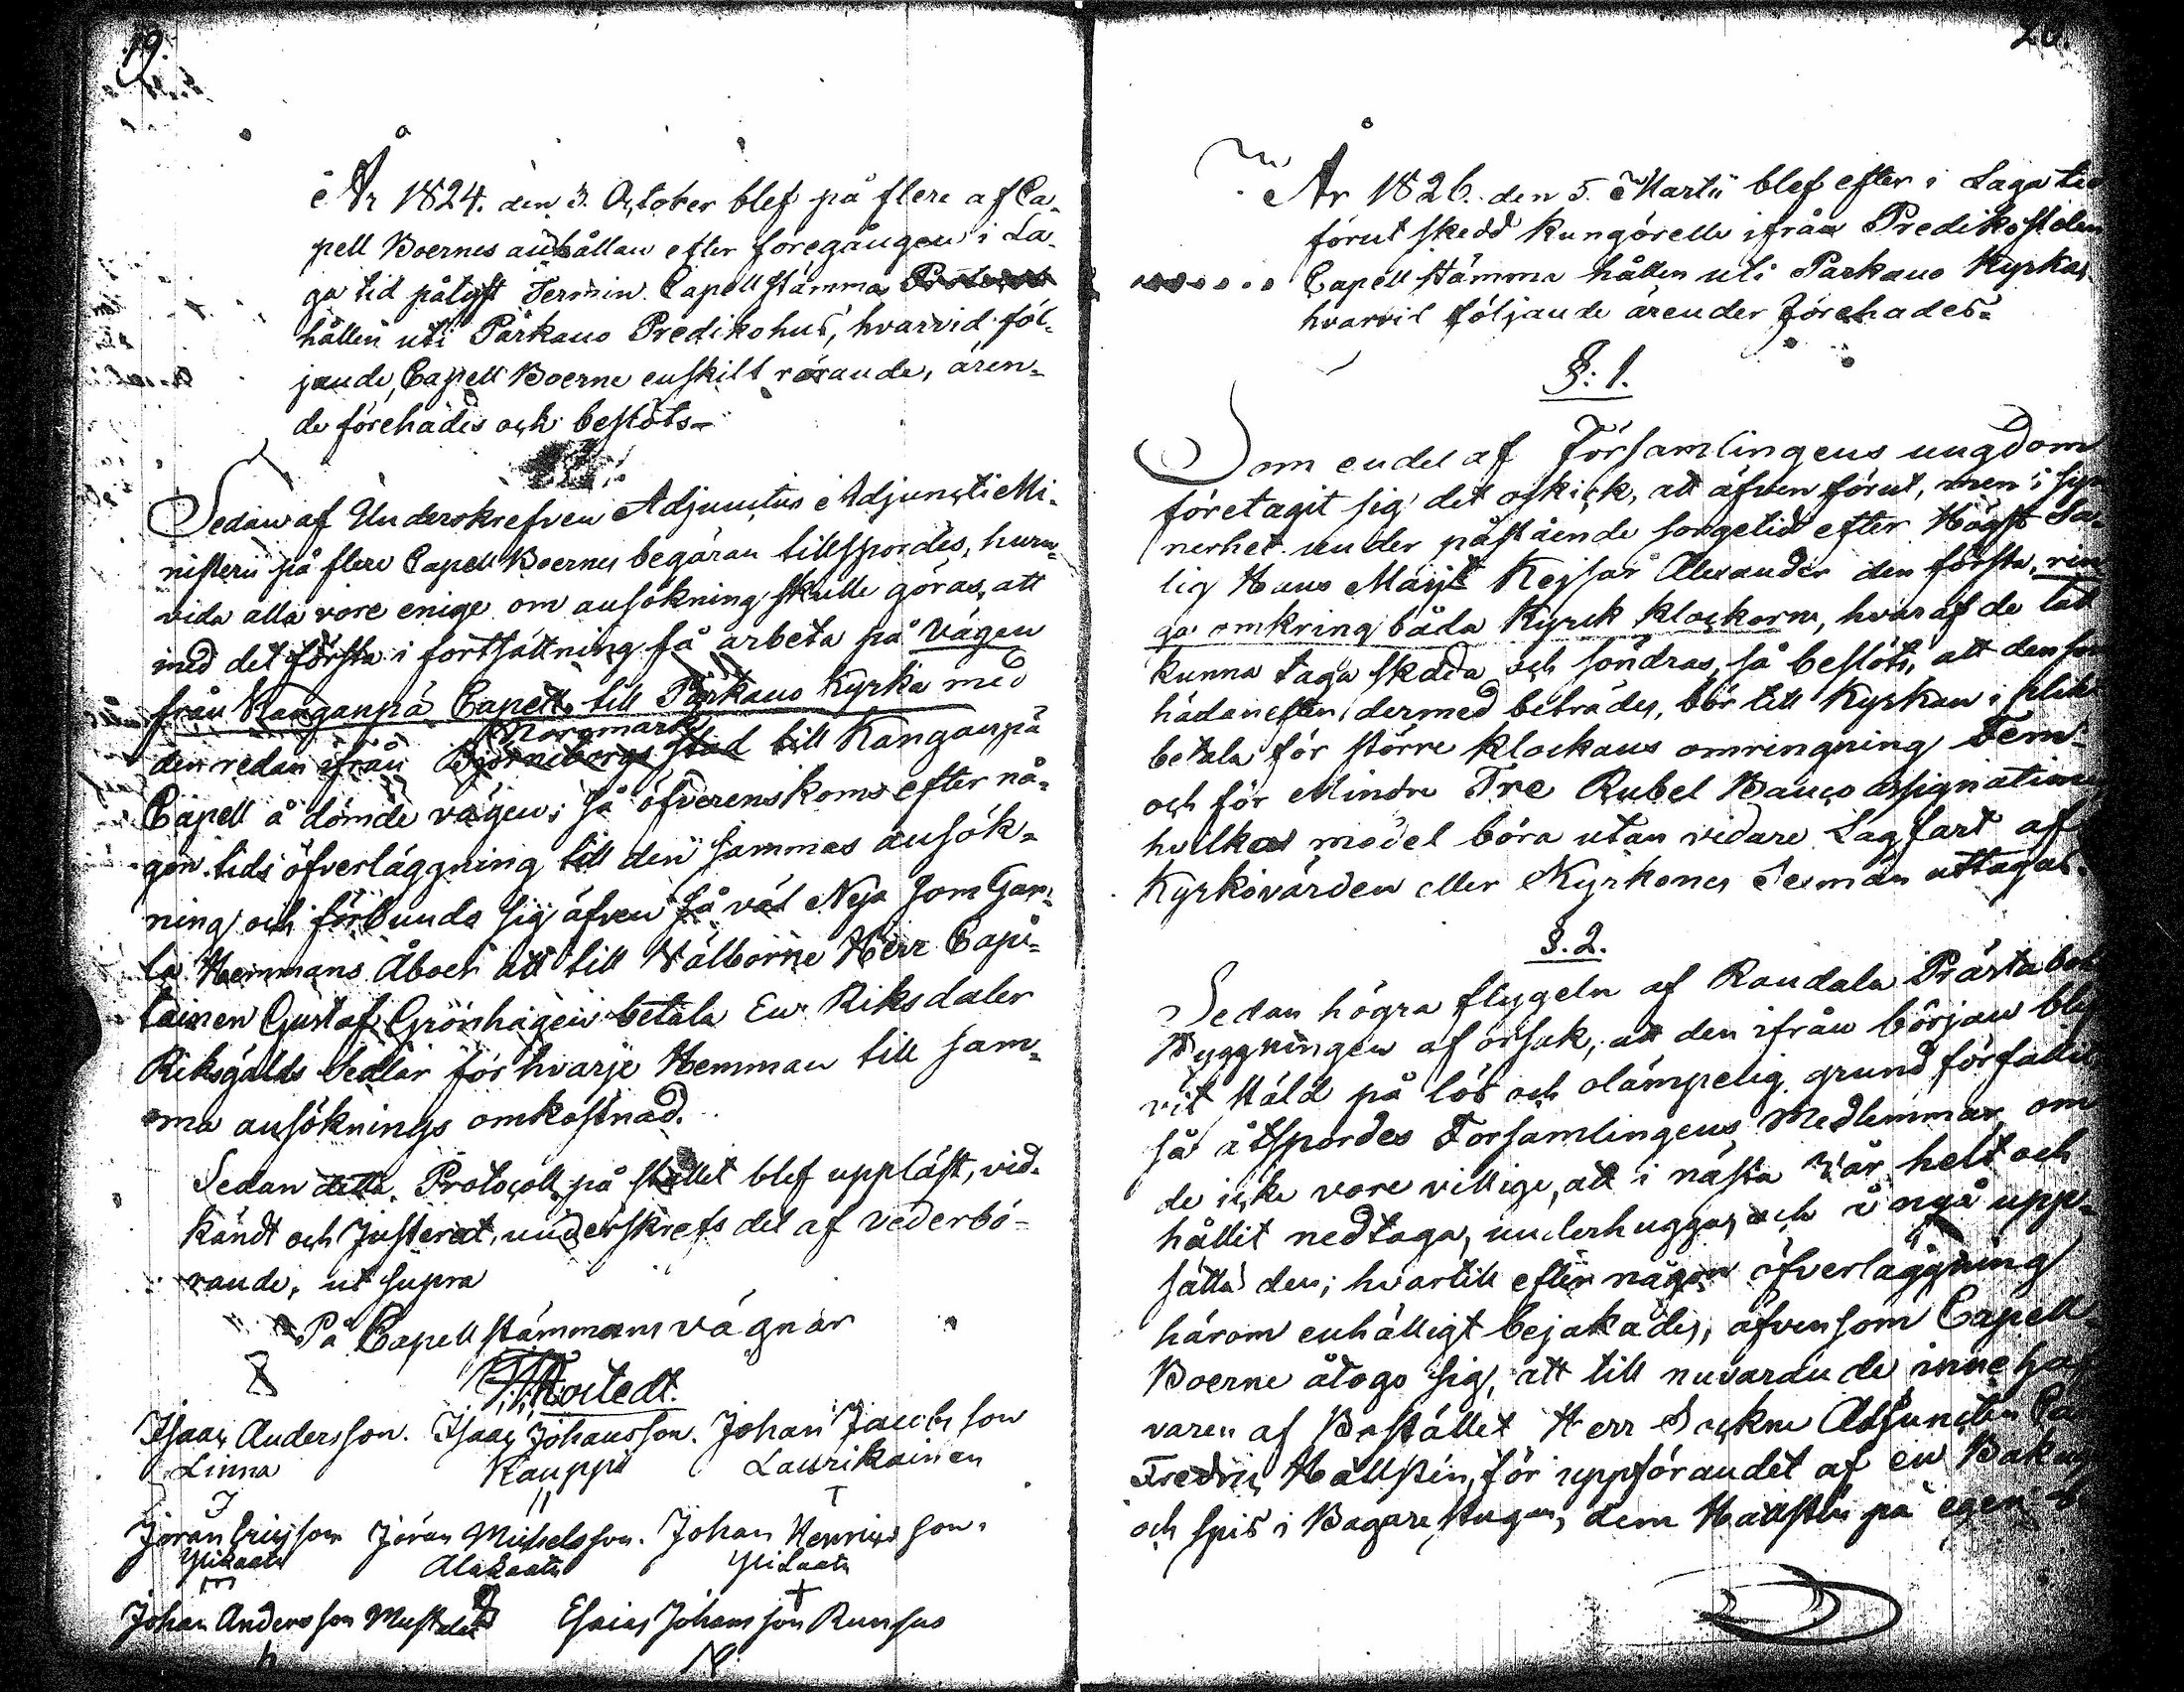 19.
År 1824. den 3. October blef på flere af Ca-
pell Boernes anhållan efter föregången i La-
ga tid pålyst Termin Capell stämma
hållen uti Parkano Predikohus, hvarvid föl-
jande, Capell Boerne enskilt rörande, ären-
de förehades och beslöts-
Sedan af Underskrefven Adjunctus Adjuncti Mi-
nisterii på flere Capell Boernes begäran tillspordes, huru-
vida alla vore enige om ansökning skulle göras, att
med det första i fortsättning få arbeta på Vägen
från Kanganpä Capell till Parkano Kyrka med
Norrmark
den redan ifrån Björneborgs stad till Kanganpä
Capell å dömde vägen; så öfverenskoms efter nå-
gon tids öfverläggning till den sammas ansök-
ning och förbundo sig äfven så väl Nya som Gam-
la Hemmans Åboer att till Välborne Herr Capi-
tainen Gustaf Grönhagen betala En Riksdaler
Riksgälds Sedlar för hvarje Hemman till sam-
ma ansöknings omkostnad.
Sedan detta Protocoll på stället blef uppläst, vid-
kändt och Justerat, underskrefs det af vederbö-
rande, ut supra
På Capell stämmans vägnar
Isaac Andersson. Isaac Johansson. Johan Jacobsson
Linna Kauppi Laurikainen
Jöran Ericsson Jöran Michelsson. Johan Henricsson.
Alakaatu
Johan Andersson Esaias Johansson
20.
År 1826. den 5. Martii blef efter i Laga tid
förut skedd kungörelle ifrån Predikostolen
Capell stämma hållen uti Parkano Kyrka,
hvarvid följande ärender förehades-
§: 1.
Som en del af Församlingens ungdom
företagit sig det oskick, att äfven förut, men i syn-
nerhet under påstående sorgetid efter Högst Sa-
lig Hans Majt Kejsar Alexander den första, rin-
ga omkring båda Kyrck klockorne, hvaraf de lätt
kunna taga skada och söndras, så beslöts, att den som
hädanefter dermed beträdes, bör till Kyrkan i plikt
betala för större klockans omringning Fem
och för Mindre Tre Rubel Banco Assignationer
hvilka medel böra utan vidare Lagfart af
Kyrkovärden eller Kyrkones Sexmän uttagas.
§. 2.
Sedan högra flygeln af Randala Prästabol
Byggningen af orsak, att den ifrån början blif-
vit stäld på lös och olämpelig grund förfallit
så åtspordes Församlingens Medlemmar, om
de icke vore villige, att i nästa Vår helt och
hållit nedtaga, underhugga, och å nyo upp-
sätta den; hvartill efter någon öfverläggning
härom enhälligt bejakades, äfvensom Capell
Boerne åtogo sig, att till nuvarande inneha-
varen af Bostället Herr Sockne Adjuncten
Fredric Hällstén, för uppförandet af en Bakugn
och spis i Bagarestugan, dem Hällstén på egen